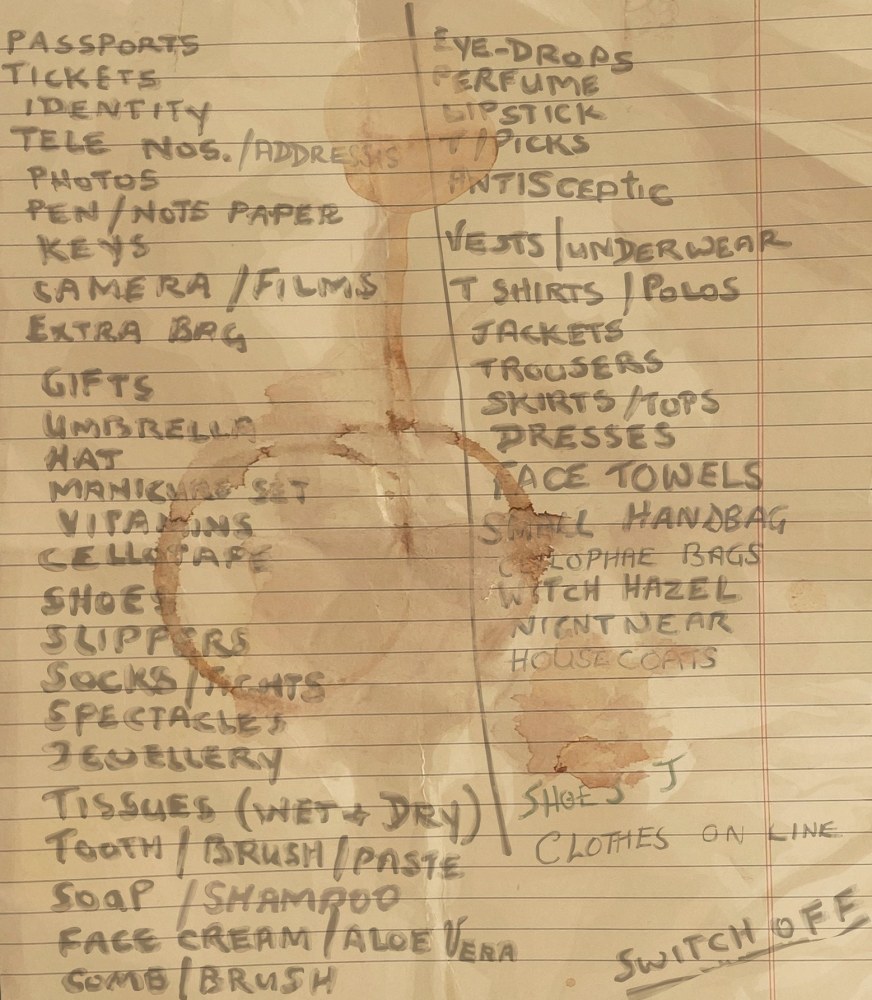 PASSPORTS
TICKETS
IDENTITY
TELE NOS./ADDRESSIS
PHOTOS
PEN/NOTE PAPER
KEYS
CAMERA /FILMS
EXTRA BAG
GIFTS
UMBRELLA
HAT
MANICURE SET
VITAMINS
CELLOTAPE
SHOES
SLIPPERS
SOCKS/TIGHTS
SPECTACLES
JEWELLERY
TISSUES (WET & DRY)
TOOTH/BRUSH/PASTE
SOAP /SHAMPOO
FACE CREAM/ALOE VERA
COMB/BRUSH
EYE-DROPS
PERFUME
LIPSTICK
T/PICKS
ANTISCEPTIC
VESTS/UNDERWEAR
T SHIRTS /POLOS
JACKETS
TROUSERS
SKIRTS/TOPS
DRESSES
FACE TOWELS
SMALL HANDBAG
CELLOPHAE BAGS
WITCH HAZEL
NIGNTNEAR
HOUSECOATS
SHOES J
CLOTHES ON LINE
SWITCH OFF